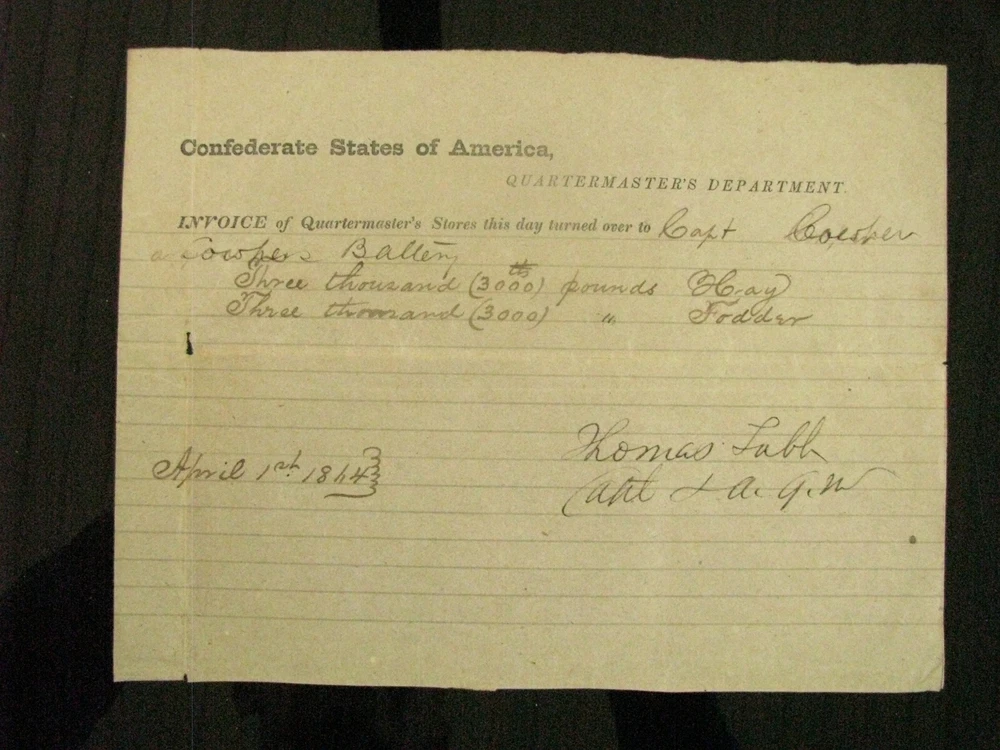 Confederate States of America,
QUARTERMASTER'S DEPARTMENT.
INVOICE of Quartermaster's Stores this day turned over to Capt Cowper
Cowpers Battery
Three thousand (3000) pounds Hay
Three thousand (3000) " Fodder
Thomas Tabb
April 1st 1864
Capt & A. Q. M